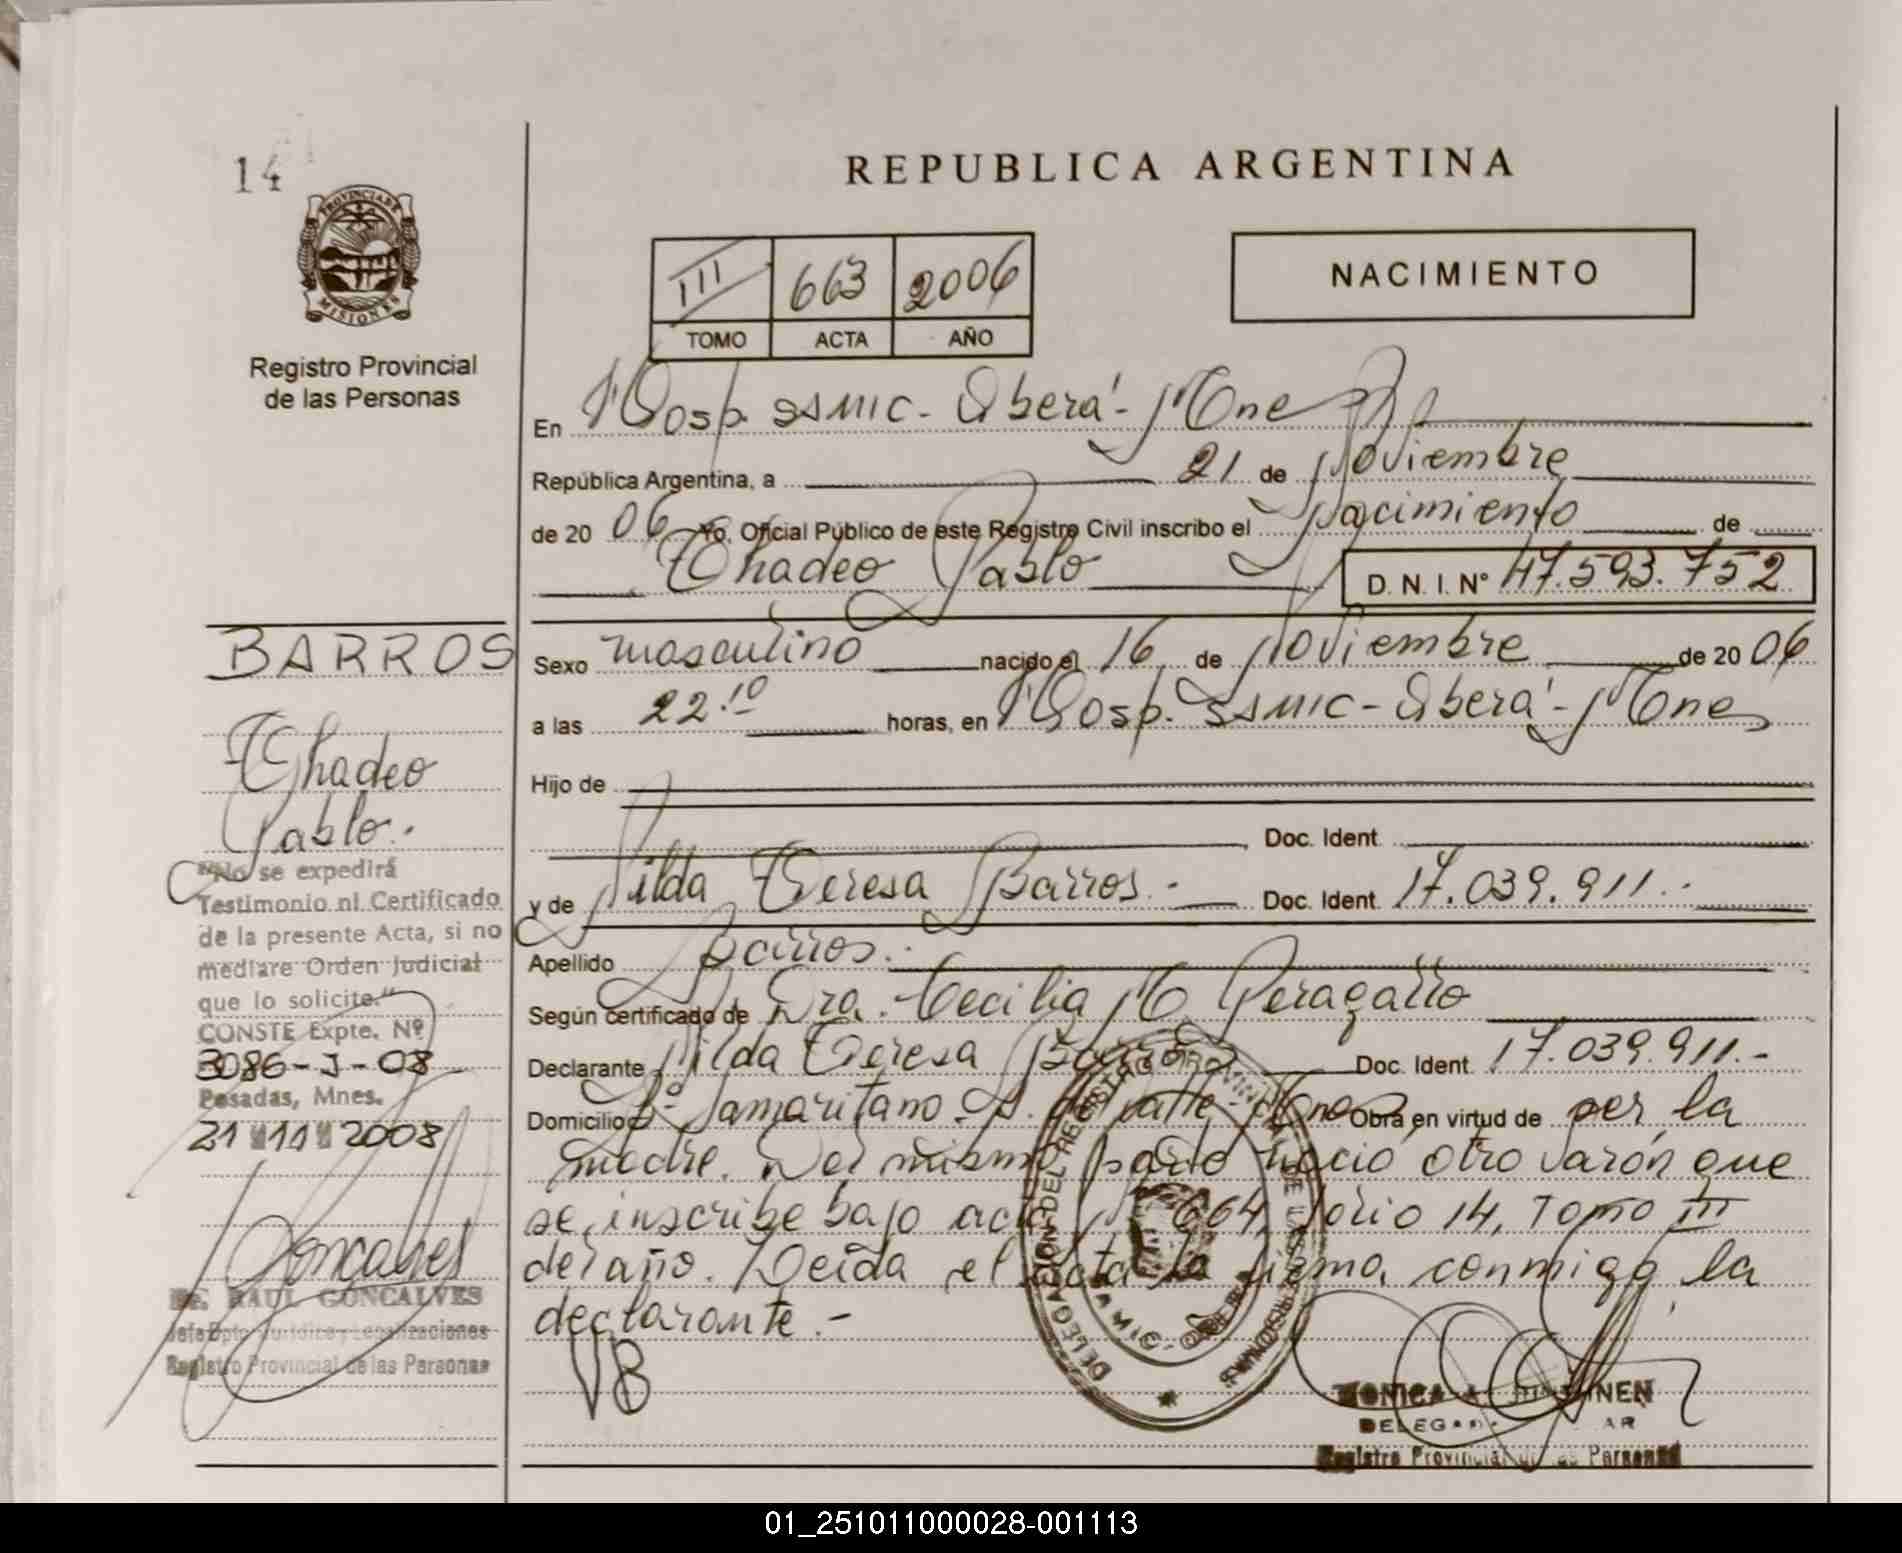 14
PROVINCIA DE
MISIONES
Registro Provincial
de las Personas
REPUBLICA ARGENTINA
III 663 2006
TOMO ACTA AÑO
NACIMIENTO
En Hosp. SSMIC - Oberá - Mnes
República Argentina, a 21 de Noviembre
de 20 06 Yo, Oficial Público de este Registro Civil inscribo el Nacimiento de
Thadeo Pablo D. N. I. Nº 47.593.752
Sexo masculino nacido el 16 de Noviembre de 20 06
a las 22.10 horas, en Hosp. SSMIC - Oberá - Mnes
Hijo de
Doc. Ident.
y de Nilda Teresa Barros.- Doc. Ident. 17.039.911.-
Apellido Barros.
Según certificado de Dra. Cecilia M. Peragallo
Declarante Nilda Teresa Barros Doc. Ident. 17.039.911.-
Domicilio Bº Samaritano. A. del Valle - Mnes Obra en virtud de ser la
madre. Del mismo parto nació otro varón que
se inscribe bajo acta Nº 664, folio 14, Tomo III
del año. Leída el acta la firma conmigo la
declarante.-
BARROS
Thadeo
Pablo.
"No se expedirá
Testimonio ni Certificado
de la presente Acta, si no
mediare Orden Judicial
que lo solicite."
CONSTE Expte. Nº
3086-J-08
Posadas, Mnes.
21 11 2008
Goncalves
Dr. RAUL GONCALVES
Jefe Dpto. Jurídico y Legalizaciones
Registro Provincial de las Personas
VB
DELEGACION DEL REGISTRO PROVINCIAL DE LAS PERSONAS
MONICA A.
Registro Provincial de las Personas
01_251011000028-001113